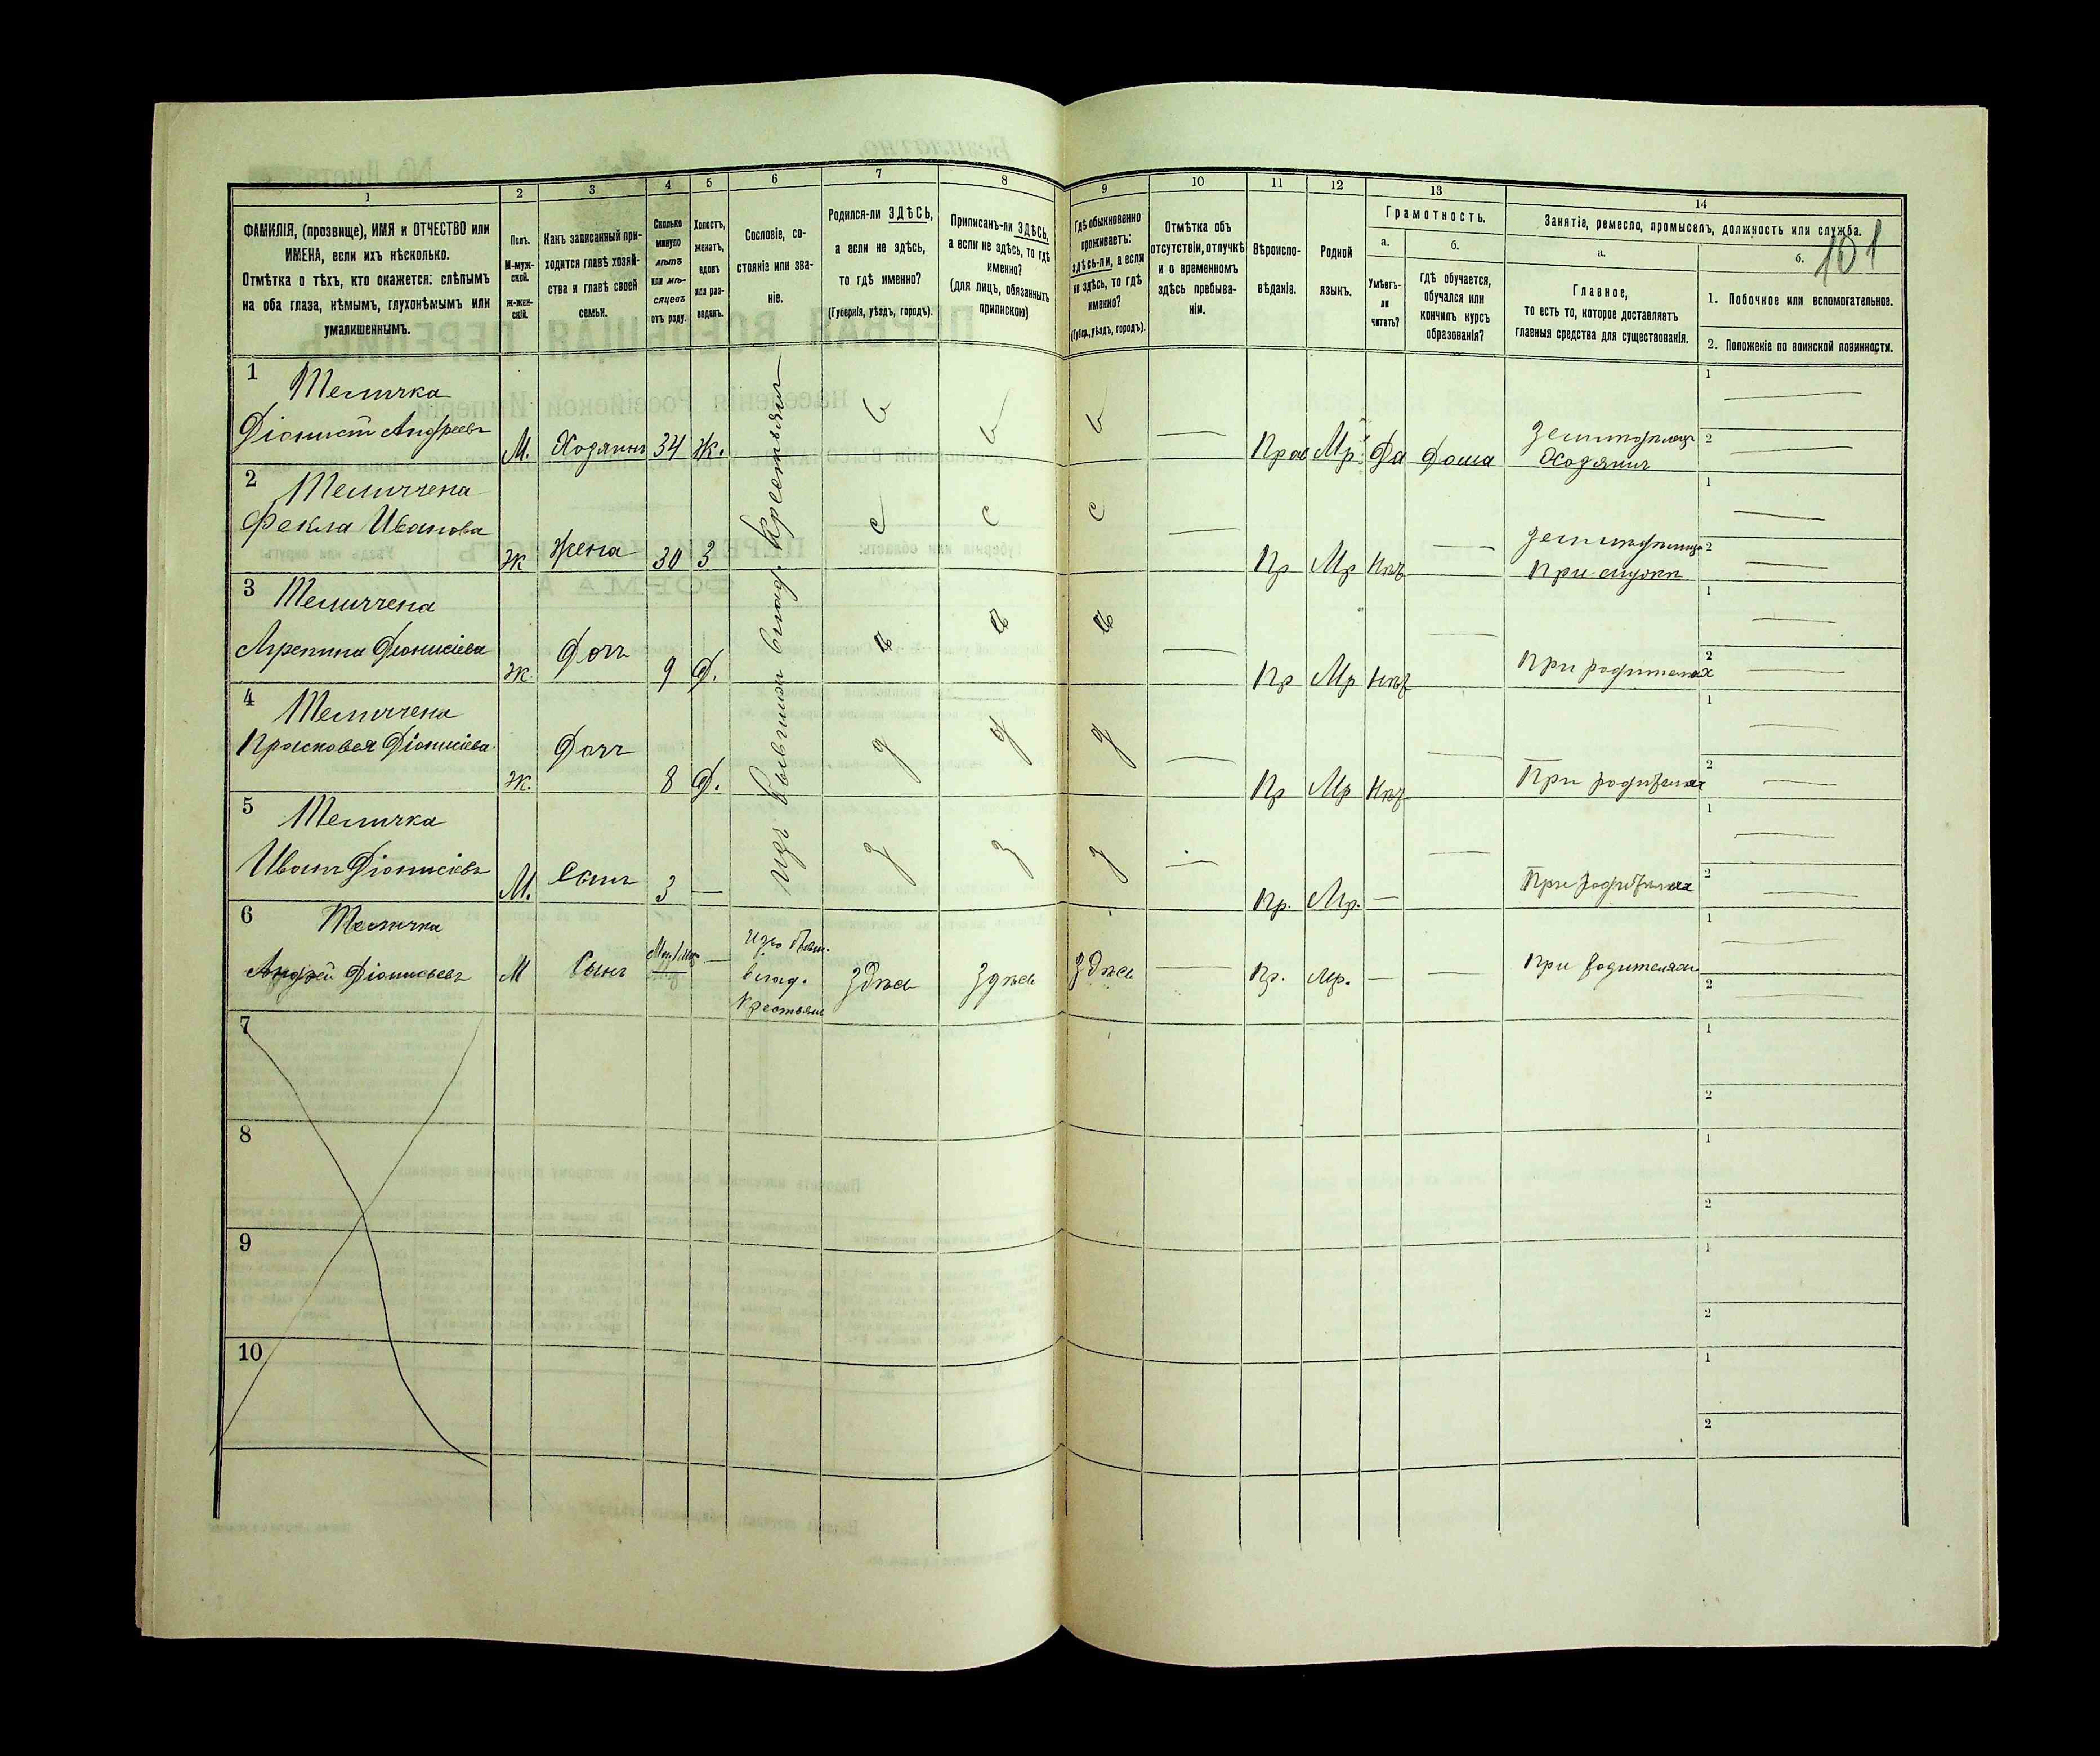 1
2
3
4
5
6
7
8
9
10
11
12
13
14
ФАМИЛІЯ, (прозвище), ИМЯ и ОТЧЕСТВО или
ИМЕНА, если ихъ нѣсколько.
Отмѣтка о тѣхъ, кто окажется: слѣпымъ
на оба глаза, нѣмымъ, глухонѣмымъ или
умалишеннымъ.
Полъ.
М-муж-
ской.
Ж-жен-
скій.
Какъ записанный при-
ходится главѣ хозяй-
ства и главѣ своей
семьи.
Сколько
минуло
лѣтъ
или мѣ-
сяцевъ
отъ роду.
Холостъ,
женатъ,
вдовъ
или раз-
веденъ.
Сословіе, со-
стояніе или зва-
ніе.
Родился-ли ЗДѢСЬ,
а если не здѣсь,
то гдѣ именно?
(Губернія, уѣздъ, городъ).
Приписанъ-ли ЗДѢСЬ,
а если не здѣсь, то гдѣ
именно?
(для лицъ, обязанныхъ
припискою)
Гдѣ обыкновенно
проживаетъ:
здѣсь-ли, а если
не здѣсь, то гдѣ
именно?
(Губер., уѣздъ, городъ).
Отмѣтка объ
отсутствіи, отлучкѣ
и о временномъ
здѣсь пребыва-
ніи.
Вѣроиспо-
вѣданіе.
Родной
языкъ.
Грамотность.
а.
Умѣетъ-
ли
читать?
б.
Гдѣ обучается,
обучался или
кончилъ курсъ
образованія?
Занятіе, ремесло, промыселъ, должность или служба.
а.
Главное,
то есть то, которое доставляетъ
главныя средства для существованія.
б.
101
1. Побочное или вспомогательное.
2. Положеніе по воинской повинности.
1
Діонисій Андреевъ
М.
Хозяинъ
34
Ж.
Прав
Мр
Да
Дома
Хозяинъ
1
2
2
Фекла Иванова
Ж
Жена
30
З
с
с
с
Пр
Мр
Нѣтъ
При мужѣ
1
2
3
Агрепина Діонисіева
Ж.
Дочь
9
Д.
Пр
Мр
Нѣтъ
При родителях
1
2
4
Прасковея Діонисіева
Ж.
Дочь
8
Д.
Пр
Мр
Нѣтъ
При родителях
1
2
5
Иванъ Діонисіевъ
М.
Сынъ
3
Пр.
Мр.
При родителях
1
2
Изъ бывших влад. крестьянъ
6
Андрей Діонисьевъ
М
Сынъ
Изъ бывш.
влад.
Крестьянъ
Здѣсь
Здѣсь
Здѣсь
Пр.
Мр.
При родителяхъ
1
2
7
1
2
8
1
2
9
1
2
10
1
2